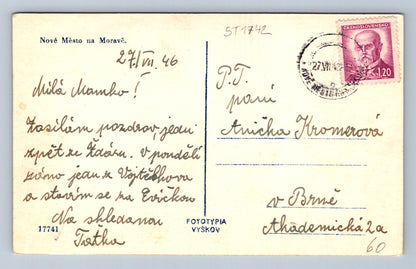 Nové Město na Moravě.
27/VII. 46
Milá Mamko!
Zasílám pozdrav jedu
zpět ze Žďáru. V pondělí
ráno jedu z Vojtěchova
a stavím se na Evičkou
Na shledanou
Tatka
17741
FOTOTYPIA
VYŠKOV
ST1742
ČESKOSLOVENSKO
1.20
P.T.
paní
Anička Kromerová
v Brně
Akademická 2a
60